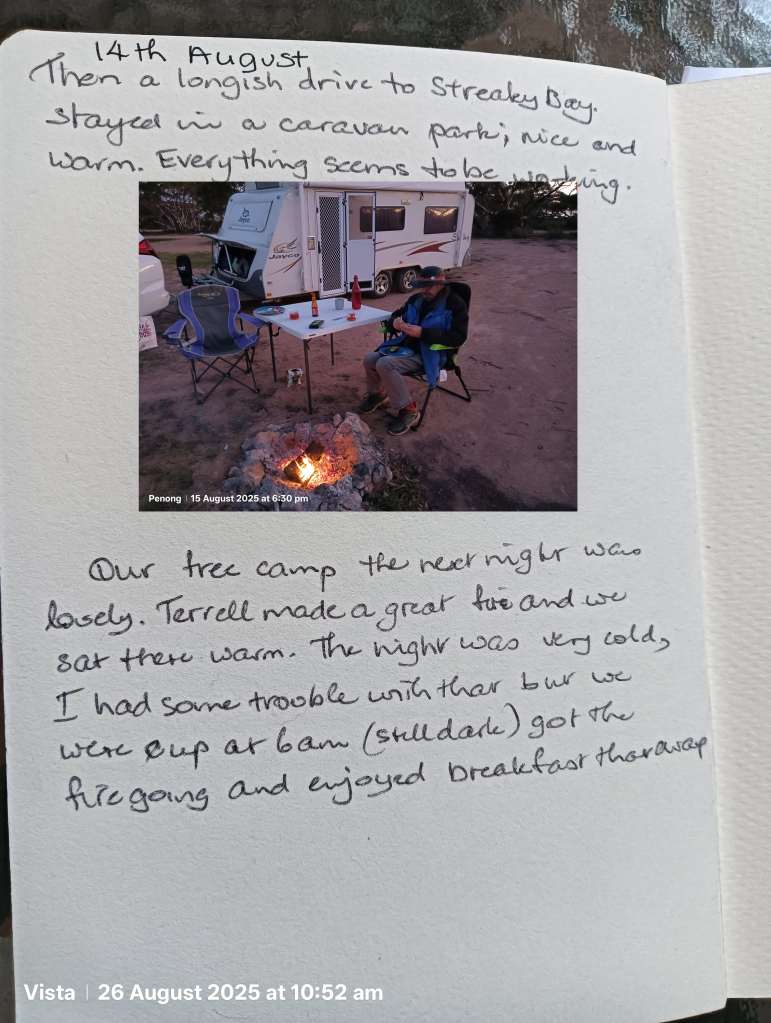 14th August
Then a longish drive to Streaky Bay.
stayed in a caravan park; nice and
warm. Everything seems to be working.
Jayco
Jayco
Penong | 15 August 2025 at 6:30 pm
Our free camp the next night was
lovely. Terrell made a great fire and we
sat there warm. The night was very cold,
I had some trouble with that but we
were up at 6am (still dark) got the
fire going and enjoyed breakfast that way
Vista | 26 August 2025 at 10:52 am